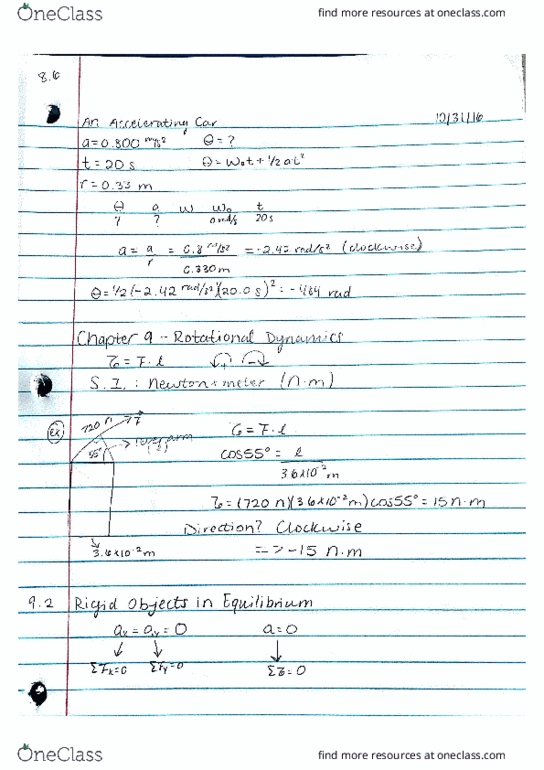 OneClass find more resources at oneclass.com
8.6
An Accelerating Car 10/31/16
a = 0.800 m/s² θ = ?
t = 20 s θ = ω₀t + 1/2 αt²
r = 0.33 m
θ a ω ω₀ t
? ? 0 rad/s 20s
a = a/r = 0.8 m/s² / 0.330m = -2.42 rad/s² (clockwise)
θ = 1/2(-2.42 rad/s²)(20.0 s)² = -484 rad
Chapter 9 - Rotational Dynamics
τ = F·l + -
S.I.: newton × meter (n·m)
ex 720 n F τ = F·l
55° → lever arm (l) cos55° = l / 3.6x10⁻² m
τ = (720 n)(3.6x10⁻² m)cos55° = 15 n·m
Direction? Clockwise
3.6x10⁻² m => -15 n·m
9.2 Rigid Objects in Equilibrium
aₓ = aᵧ = 0 α = 0
↓ ↓ ↓
ΣFₓ=0 ΣFᵧ=0 Στ=0
OneClass find more resources at oneclass.com